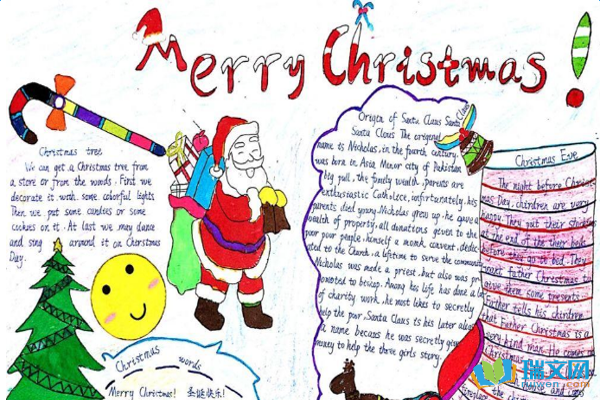 Merry Christmas!
Christmas tree
We can get a Christmas tree from
a store or from the woods. First we
decorate it with some colorful lights
Then we put some candies or some
cookies on it. At last we may dance
and sing around it on Christmas
Day.
Christmas words
Merry Christmas! 圣诞快乐!
Origen of Santa Claus Santa Claus
Santa Claus The original
name is Nicholas, in the fourth century
was born in Asia Minor city of Pakistan
big pull, the family wealth, parents are
enthusiastic Catholice, unfortunately, his
parents died young. Nicholas grew up, he gave a
wealth of property, all donations given to the
poor poor people, himself a monk, convent, dedic-
ated to the Church, a lifetime to serve the community
Nicholas was made a priest, but also was pro
moted to bishop. Among his life has done a lot
of charity work, he most likes to secretly
help the poor, Santa Claus is his later alias
a name because he was secretly given
money to help the three girls story.
Christmas Eve
The night before Christ
mas Day, children are very
happy. They put their stockings
at the end of their beds
before they go to bed. They
want father Christmas to
give them some presents.
Father tells his children
that Father Christmas is a
very kind man. He comes on
Christmas
瑞文网
ruiwen.com